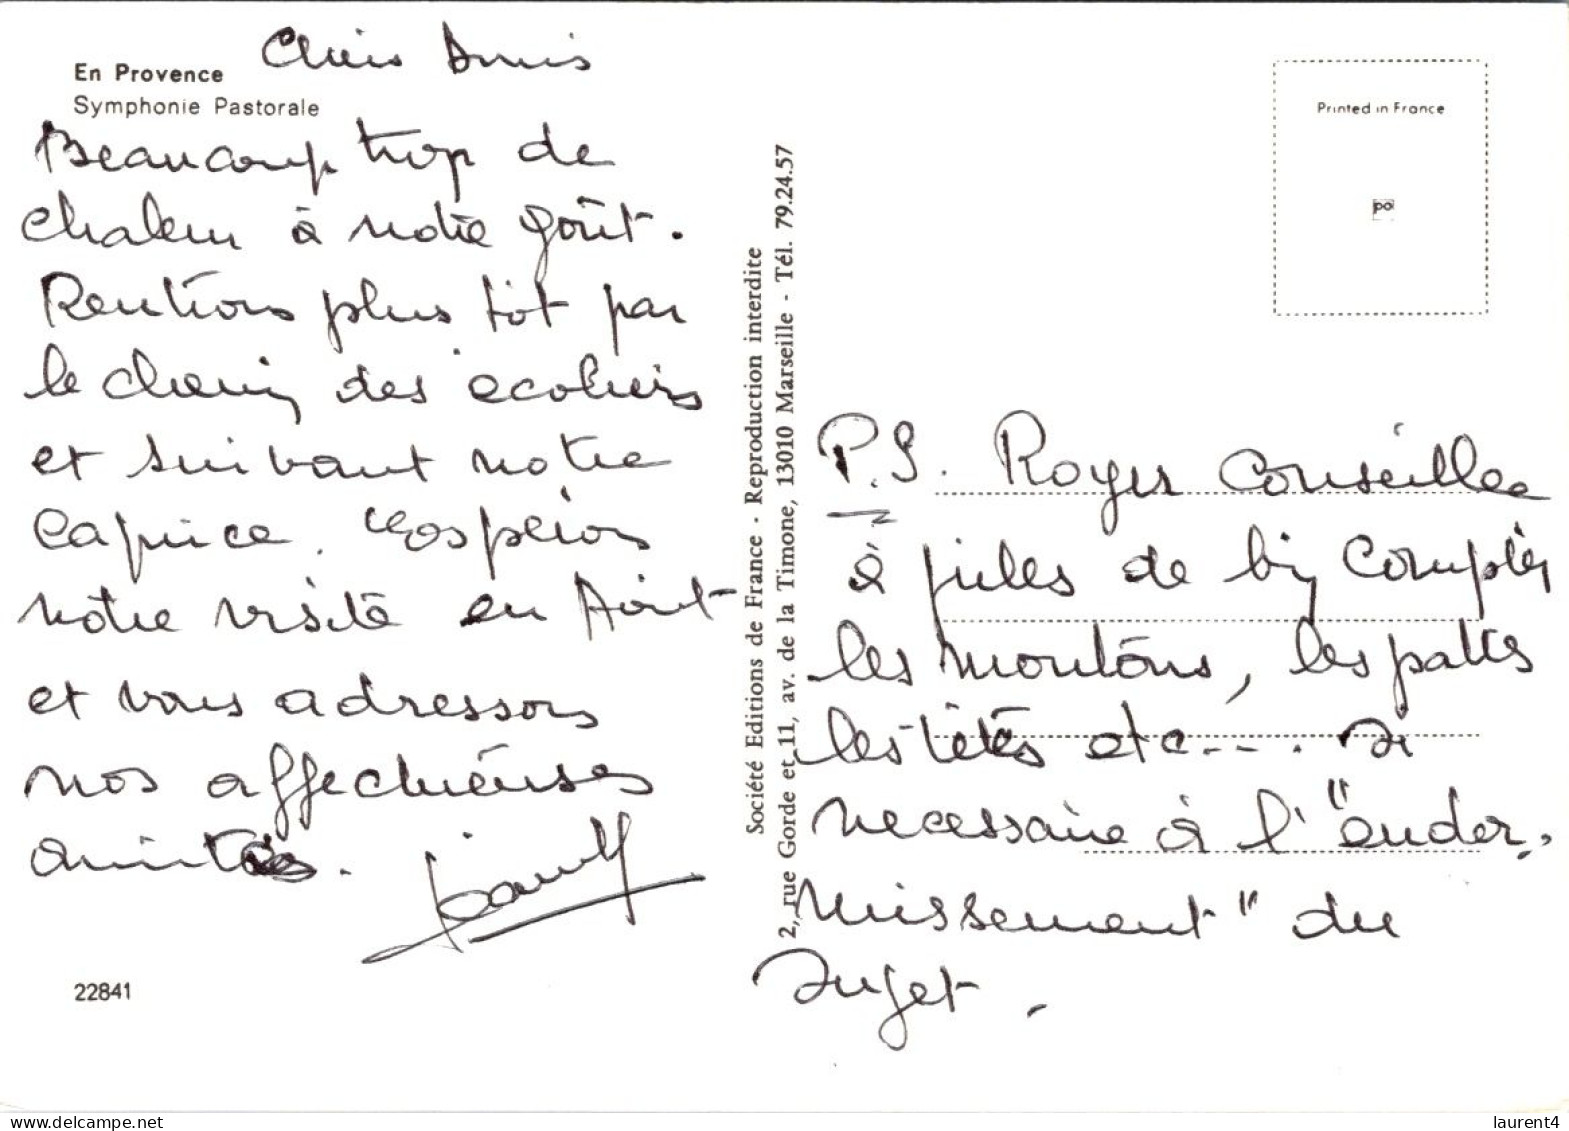 En Provence
Symphonie Pastorale
Chers Amis
Beaucoup trop de
chaleur à notre goût.
Rentrons plus tôt par
le chemin des écoliers
et suivant notre
caprice. Espérons
notre visite en Août
et vous adressons
nos affectueuses
amitiés.
22841
Société Editions de France - Reproduction interdite
2, rue Gorde et 11, av. de la Timone, 13010 Marseille - Tél. 79.24.57
Printed in France
P.S. Roger conseille
à Jules de bien compter
les moutons, les pattes
les têtes etc---. si
necessaire à l'"endor-
missement" du
sujet.
laurent4